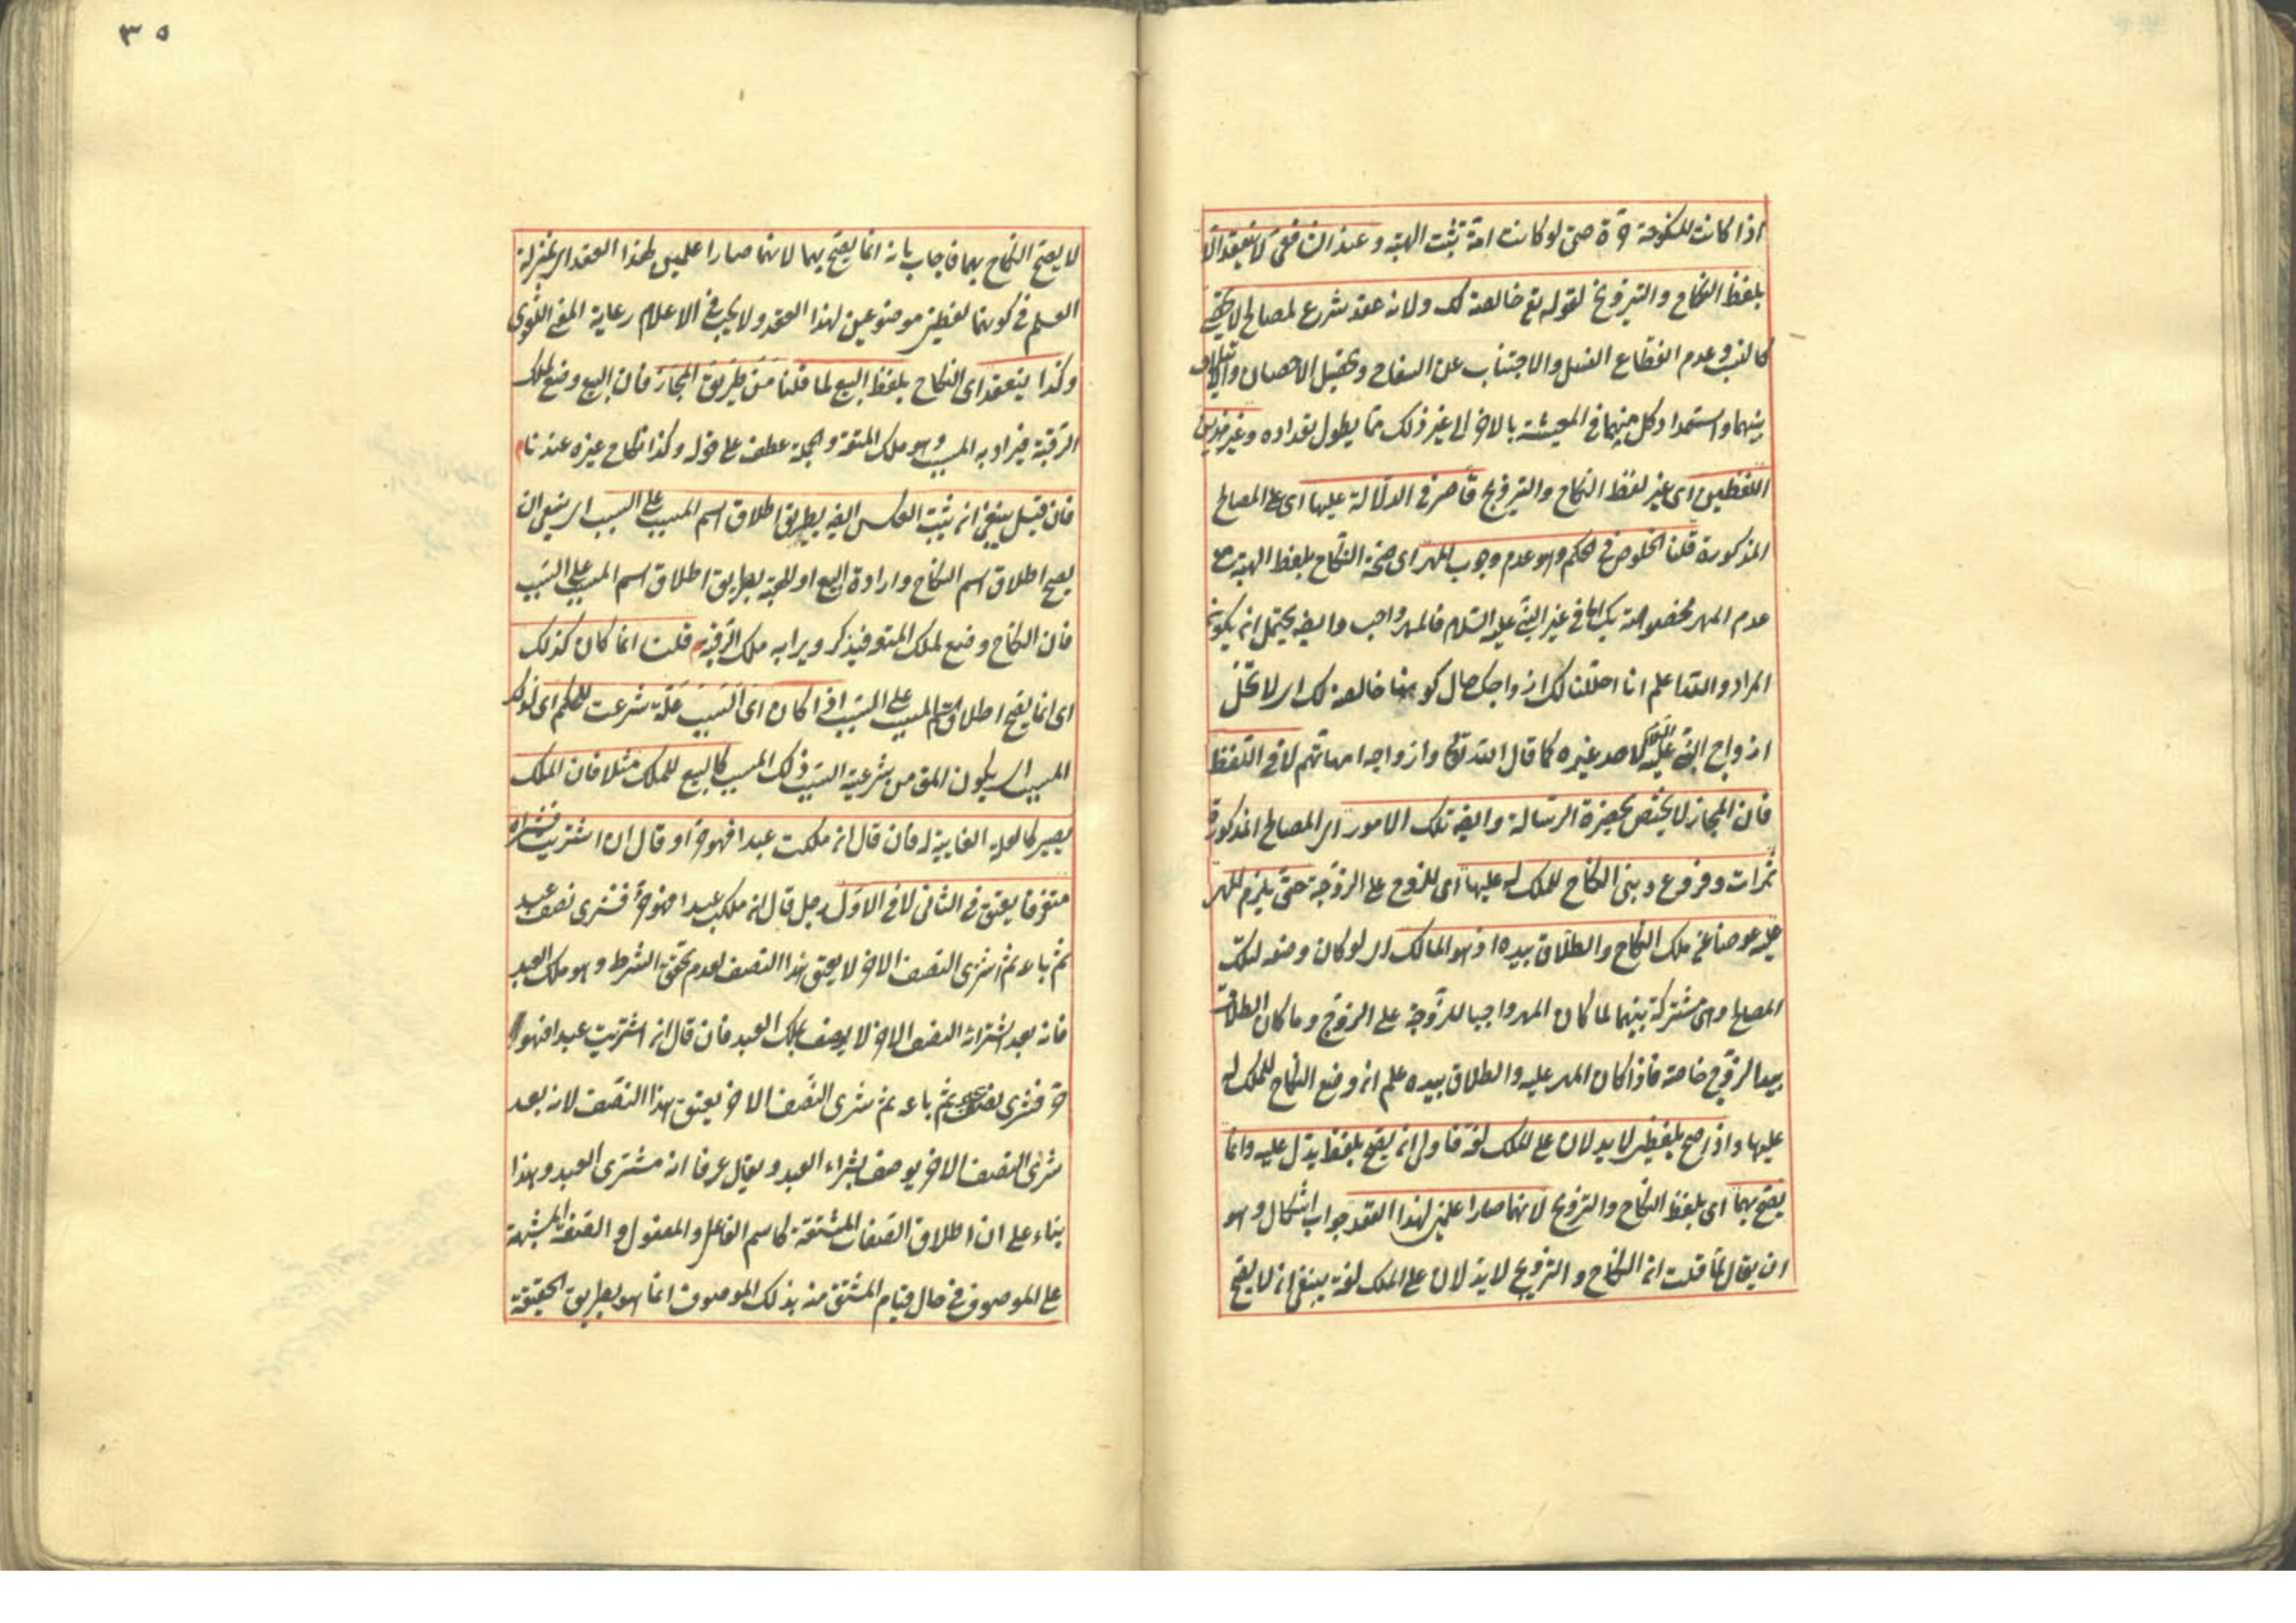 اذا كانت المنكوحة حرة حتى لو كانت امة تثبت الهبة وعند الشافعي لا ينعقد الا
بلفظ النكاح والتزويج لقوله تع خالصة لك ولانه عقد شرع لمصالح لا تحصى
كالنسب وعدم انقطاع النسل والاجتناب عن السفاح وتحصيل الاحصان والايتلاف
بينهما واستمداد كل منهما في المعيشة بالاخر الى غير ذلك مما يطول تعداده وغير هذين
اللفظين اى غير لفظ النكاح والتزويج قاصر في الدلالة عليها اى على المصالح
المذكورة قلنا الخلوص في الحكم وهو عدم وجوب المهر اى صحة النكاح بلفظ الهبة مع
عدم المهر مخصوصة بك اما في غير النبى عليه السلام فالمهر واجب وايضا يحتمل ان يكون
المراد والله اعلم انا احللنا لك ازواجك حال كونها خالصة لك اى لا تحل
ازواج النبى عليه السلام لاحد غيره كما قال الله تعالى وازواجه امهاتهم لا في اللفظ
فان المجاز لا يختص بحضرة الرسالة وايضا تلك الامور اى المصالح المذكورة
ثمرات وفروع وبنى النكاح للملك له عليها اى للزوج على الزوجة حتى يلزم المهر
عليه عوضا عن ملك النكاح والطلاق بيده اذ هو المالك اى لو كان وضعه لتلك
المصالح وهى مشتركة بينهما لما كان المهر واجبا للزوجة على الزوج وما كان الطلاق
بيد الزوج خاصة فاذا كان المهر عليه والطلاق بيده علم انه وضع النكاح للملك له
عليها واذا صح بلفظين لا يدلان على الملك لغة فاولى ان يصح بلفظ يدل عليه وانما
يصح بهما اى بلفظ النكاح والتزويج لانهما صارا علمين لهذا العقد جواب اشكال وهو
ان يقال لما قلت ان النكاح والتزويج لا يدلان على الملك لغة ينبغى ان لا يصح
٣٥
لا يصح النكاح بهما فاجاب بانه انما يصح بهما لانهما صارا علمين لهذا العقد اى بمنزلة
العلم في كونهما لفظين موضوعين لهذا العقد ولا يجب في الاعلام رعاية المعنى اللغوى
وكذا ينعقد اى النكاح بلفظ البيع لما قلنا من طريق المجاز فان البيع وضع لملك
الرقبة فيراد به المسبب وهو ملك المتعة والجملة عطف على قوله وكذا نكاح غيره عندنا
فان قيل ينبغى ان يثبت العكس ايضا بطريق اطلاق اسم المسبب على السبب اى ينبغى ان
يصح اطلاق اسم النكاح وارادة البيع او الهبة بطريق اطلاق اسم المسبب على السبب
فان النكاح وضع لملك المتعة فيذكر ويراد به ملك الرقبة قلت انما كان كذلك
اى انما يصح اطلاق اسم المسبب على السبب اذا كان اى السبب علة شرعت للحكم اى لذلك
المسبب اى يكون المقص من شرعية السبب ذلك المسبب كالبيع للملك مثلا فان الملك
يصير كالعلة الغايية له فان قال ان ملكت عبدا فهو حر او قال ان اشتريت فشراه
متفرقا يعتق في الثانى لا في الاول رجل قال ان ملكت عبدا فهو حر فشرى نصف عبد
ثم باعه ثم اشترى النصف الاخر لا يعتق هذا النصف لعدم تحقق الشرط وهو ملك العبد
فانه بعد اشتراء النصف الاخر لا يوصف بملك العبد فان قال ان اشتريت عبدا فهو
حر فشرى نصف عبد ثم باعه ثم شرى النصف الاخر يعتق هذا النصف لانه بعد
شرى النصف الاخر يوصف بشراء العبد ويقال عرفا انه مشترى العبد وهذا
بناء على ان اطلاق الصفات المشتقة كاسم الفاعل والمفعول والصفة المشبهة
على الموصوف في حال قيام المشتق منه بذلك الموصوف انما هو بطريق الحقيقة